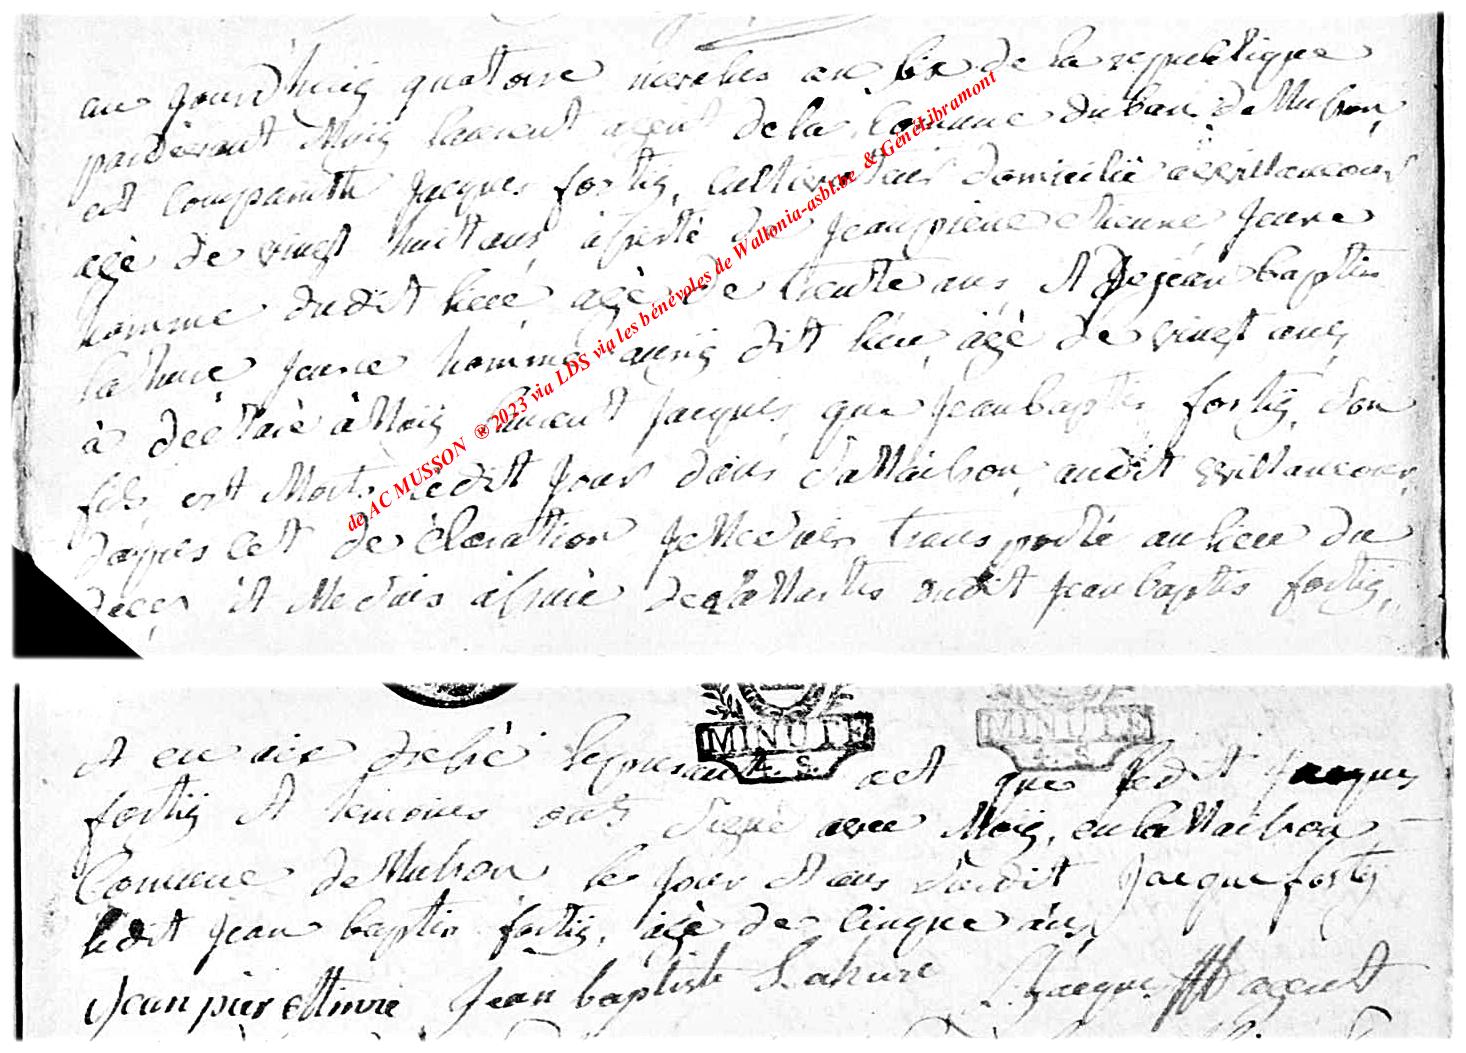 au jourd'huis quatorse merches an six de la republique
pardevant Mois laurent agent de la Comune du ban de Musson
est comparutte Jacques fortis, cultivateur domicilié a Willancour
agé de vingt huit ans, assisté de Jean pierre etienne Jeune
homme dudit lieu, agé de trente ans, et de jean baptis
lahure jeune homme ausis dit lieu, agé de vingt ans,
à déclaré à Mois laurent jacques, que jean baptis fortis, son
fils, est Morts ledit jour dans sa Maison, audit Willancour,
dapres cet déclaration je me suis transporté au lieu du
deces et Me suis assuré de la Morts dudit jean baptis fortis,
MINUTE MINUTE
et en aie dressé le presant act que ledit Jacques
fortis et temoins onts signé avec Mois, en la Maison
Comune de Musson le jour et ans susdit Jacque fortis
ledit jean baptis fortis, agé de cinque ans,
Jean pier etinne Jean baptiste Lahure Jacques agent
de AC MUSSON ® 2023 via LDS via les bénévoles de Wallonia-asbl.be & GénéLibramont